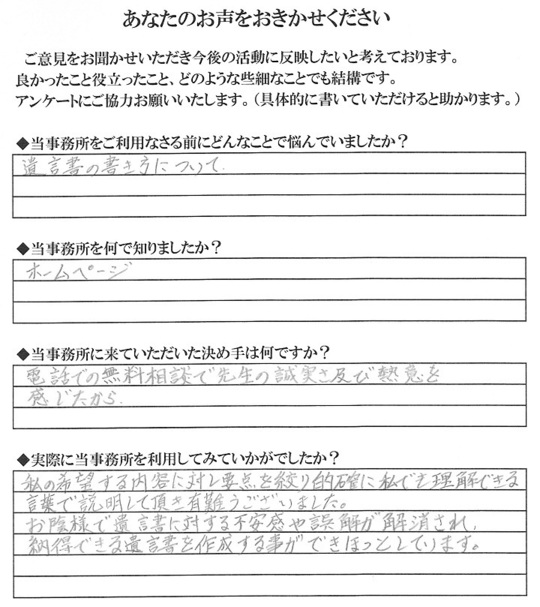 あなたのお声をおきかせください
ご意見をお聞かせいただき今後の活動に反映したいと考えております。
良かったこと役立ったこと、どのような些細なことでも結構です。
アンケートにご協力お願いいたします。(具体的に書いていただけると助かります。)
◆当事務所をご利用なさる前にどんなことで悩んでいましたか?
遺言書の書き方について.
◆当事務所を何で知りましたか?
ホームページ
◆当事務所に来ていただいた決め手は何ですか?
電話での無料相談で先生の誠実さ及び熱意を
感じたから.
◆実際に当事務所を利用してみていかがでしたか?
私の希望する内容に対し要点を絞り的確に私でも理解できる
言葉で説明して頂き有難うございました。
お陰様で遺言書に対する不安感や誤解が解消され、
納得できる遺言書を作成する事ができほっとしています。